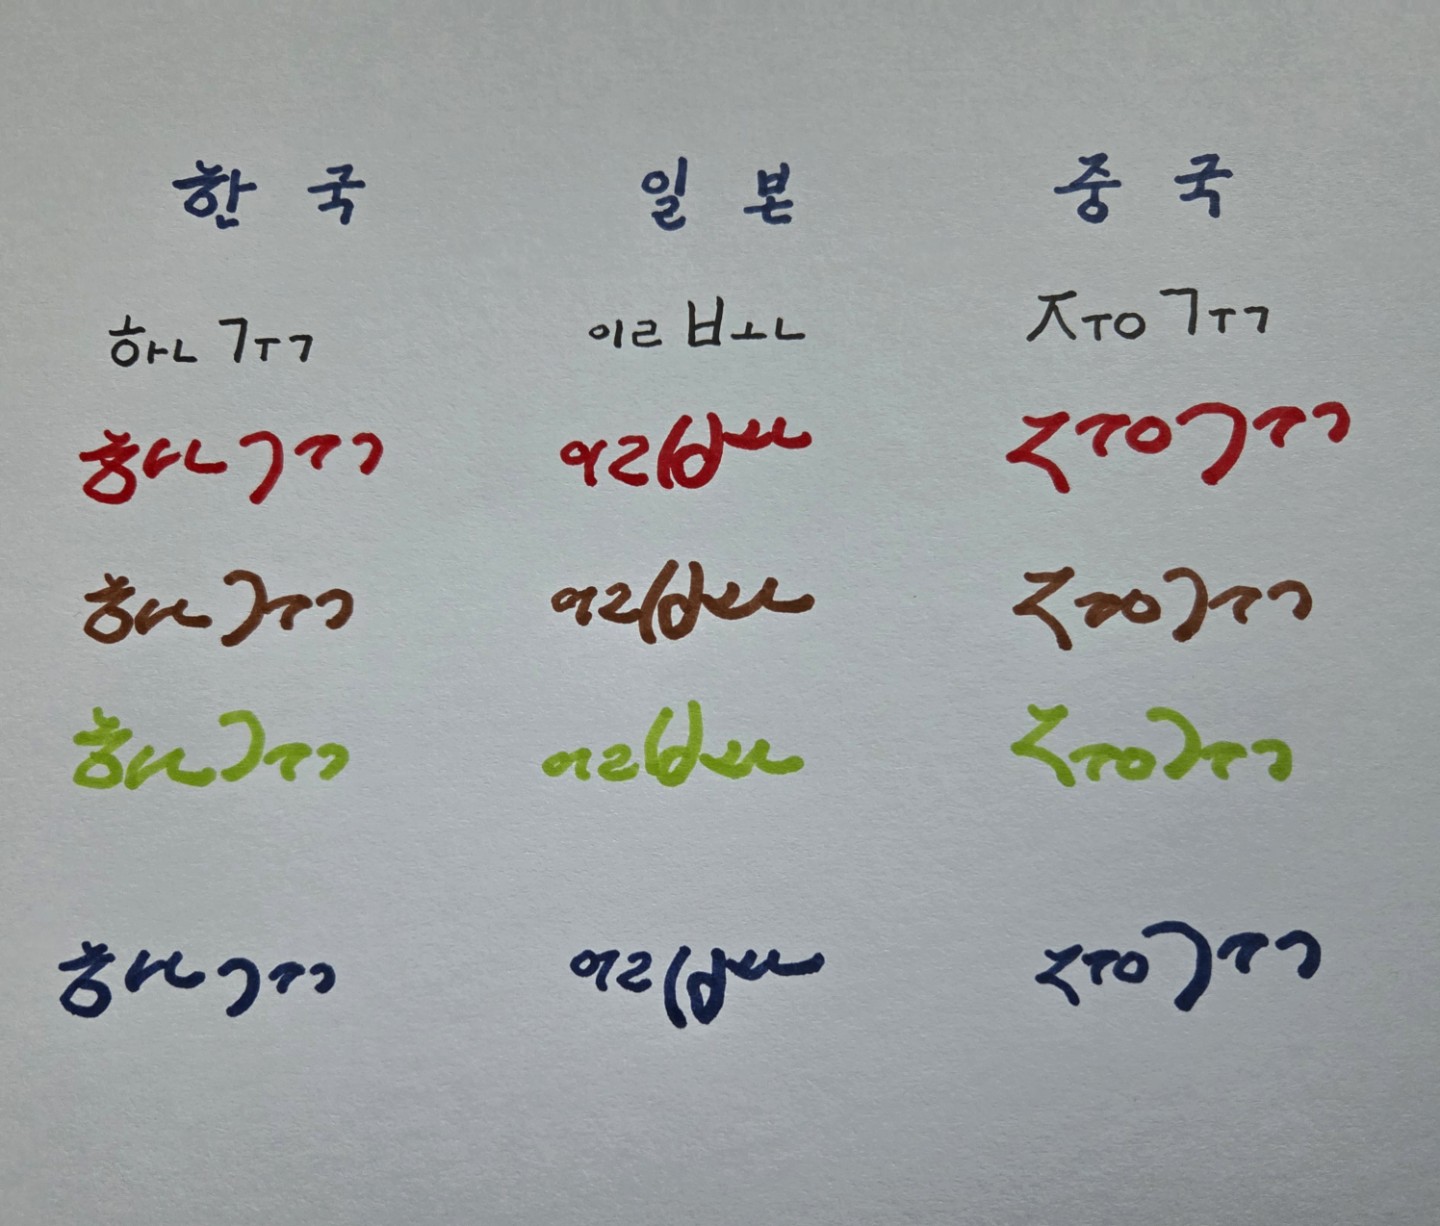 한국 일본 중국
ㅎㅏㄴ ㄱㅜㄱ ㅇㅣㄹ ㅂㅗㄴ ㅈㅜㅇ ㄱㅜㄱ
ㅎㅏㄴ ㄱㅜㄱ ㅇㅣㄹ ㅂㅗㄴ ㅈㅜㅇ ㄱㅜㄱ
ㅎㅏㄴ ㄱㅜㄱ ㅇㅣㄹ ㅂㅗㄴ ㅈㅜㅇ ㄱㅜㄱ
ㅎㅏㄴ ㄱㅜㄱ ㅇㅣㄹ ㅂㅗㄴ ㅈㅜㅇ ㄱㅜㄱ
ㅎㅏㄴ ㄱㅜㄱ ㅇㅣㄹ ㅂㅗㄴ ㅈㅜㅇ ㄱㅜㄱ